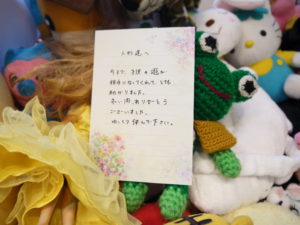 人形達へ
今まで、子供の遊び
相手になってくれて、とても
助かりました。
長い間、ありがとう
ございました。
ゆっくり休んで下さい。